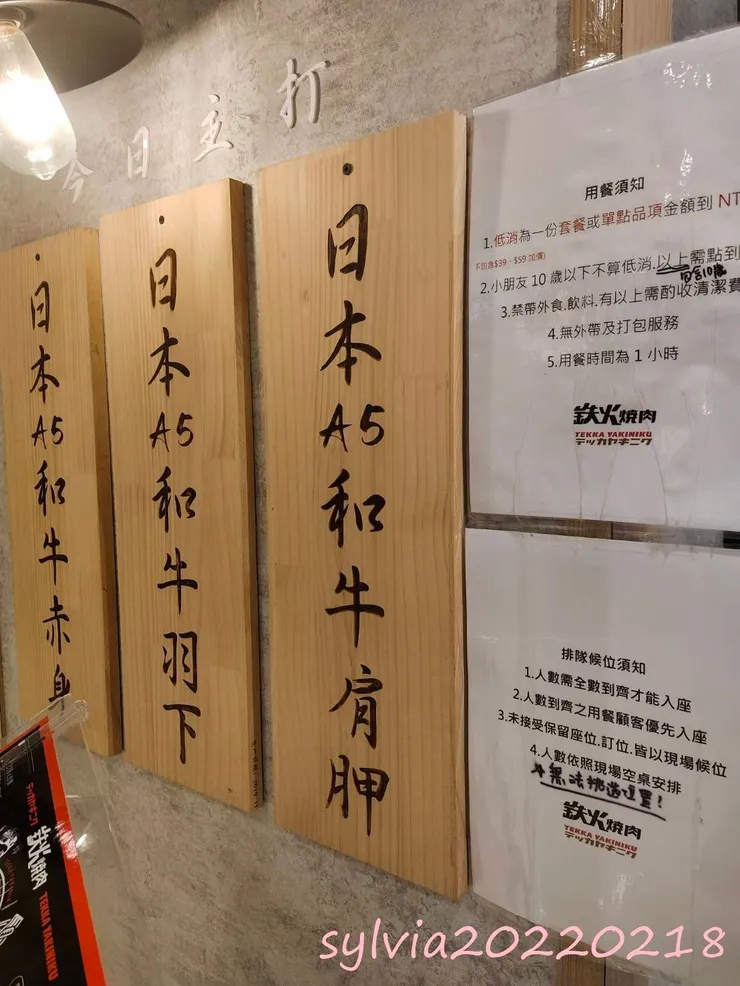 今日主打
日本A5和牛肩胛
日本A5和牛羽下
日本A5和牛赤身
用餐須知
1.低消為一份套餐或單點品項金額到 NT
不包含$39、$59 加價)
2.小朋友 10 歲以下不算低消.以上需點到
包含10歲
3.禁帶外食.飲料.有以上需酌收清潔費
4.無外帶及打包服務
5.用餐時間為 1 小時
鉄火焼肉
TEKKA YAKINIKU
テッカヤキニク
排隊候位須知
1.人數需全數到齊才能入座
2.人數到齊之用餐顧客優先入座
3.未接受保留座位.訂位.皆以現場候位
4.人數依照現場空桌安排
無法挑選位置!
鉄火焼肉
TEKKA YAKINIKU
テッカヤキニク
テッカヤキニク
鉄火焼肉 TEKKA YAKINIKU
sylvia20220218